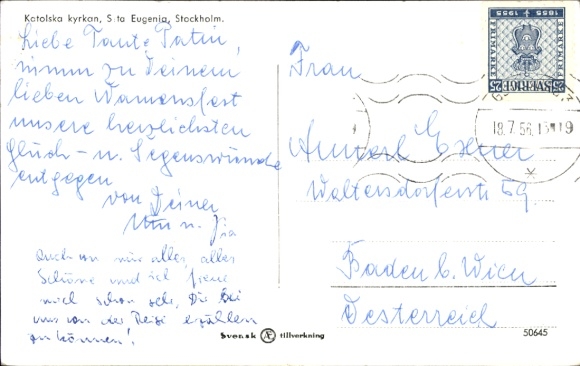 Katolska kyrkan, S:ta Eugenia, Stockholm.
Liebe Tante Patin,
nimm zu Deinem
lieben Namensfest
unsere herzlichsten
Glück- u. Segenswünsche
entgegen
von Deiner
u.
Auch von mir alles, alles
Schöne und ich freue
mich schon sehr, Dir bei
uns von der Reise erzählen
zu können!
Frau
Annerl Exner
Waltersdorferstr 59
Baden b. Wien
Oesterreich
1855 1955
FRIMÄRKE
SVERIGE
25 25
18.7.56
Svensk Æ tillverkning
50645